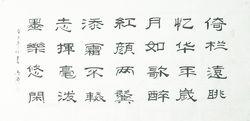 倚栏遠眺
忆华年歲
月如歌醉
紅顏两鬢
添霜不輟
志揮毫潑
墨樂悠閑